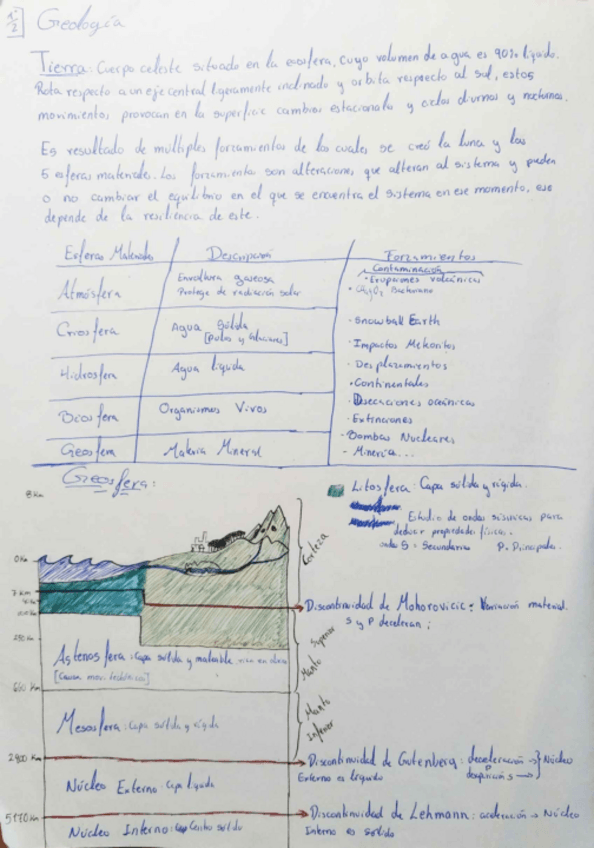 1/2 Geología
Tierra: Cuerpo celeste situado en la ecosfera, cuyo volumen de agua es 90% líquido.
Rota respecto a un eje central ligeramente inclinado y orbita respecto al sol, estos
movimientos provocan en la superficie cambios estacionales y ciclos diurnos y nocturnos.
Es resultado de múltiples forzamientos de los cuales se creó la luna y las
5 esferas materiales. Los forzamientos son alteraciones que alteran al sistema y pueden
o no cambiar el equilibrio en el que se encuentra el sistema en ese momento, eso
depende de la resiliencia de este.
Esferas Materiales Descripción Forzamientos
Contaminación
Atmósfera Envoltura gaseosa • Erupciones volcánicas
Protege de radiación solar
Criosfera Agua Sólida • Snowball Earth
[polos y Glaciares]
• Impactos Meteoritos
Hidrosfera Agua líquida • Desplazamientos
• Continentales
Biosfera Organismos Vivos • Desecaciones oceánicas
• Extinciones
- Bombas Nucleares
Geosfera Materia Mineral - Minería...
Geosfera:
Litosfera: Capa sólida y rígida.
8 Km
Estudio de ondas sísmicas para
deducir propiedades físicas.
ondas S = Secundarias P = Principales.
Corteza
0 Km
7 Km
Discontinuidad de Mohorovicic: Variación material.
S y P deceleran;
Superior
Manto
Astenosfera: Capa sólida y maleable
[Causa mov. tectónicos]
660 Km
Manto
Inferior
Mesosfera: Capa sólida y rígida
2900 Km
Discontinuidad de Gutenberg: deceleración P → Núcleo
Externo es líquido desaparición S →
Núcleo Externo: Capa líquida
5170 Km
Discontinuidad de Lehmann: aceleración → Núcleo
Interno es sólido
Núcleo Interno: Centro sólido